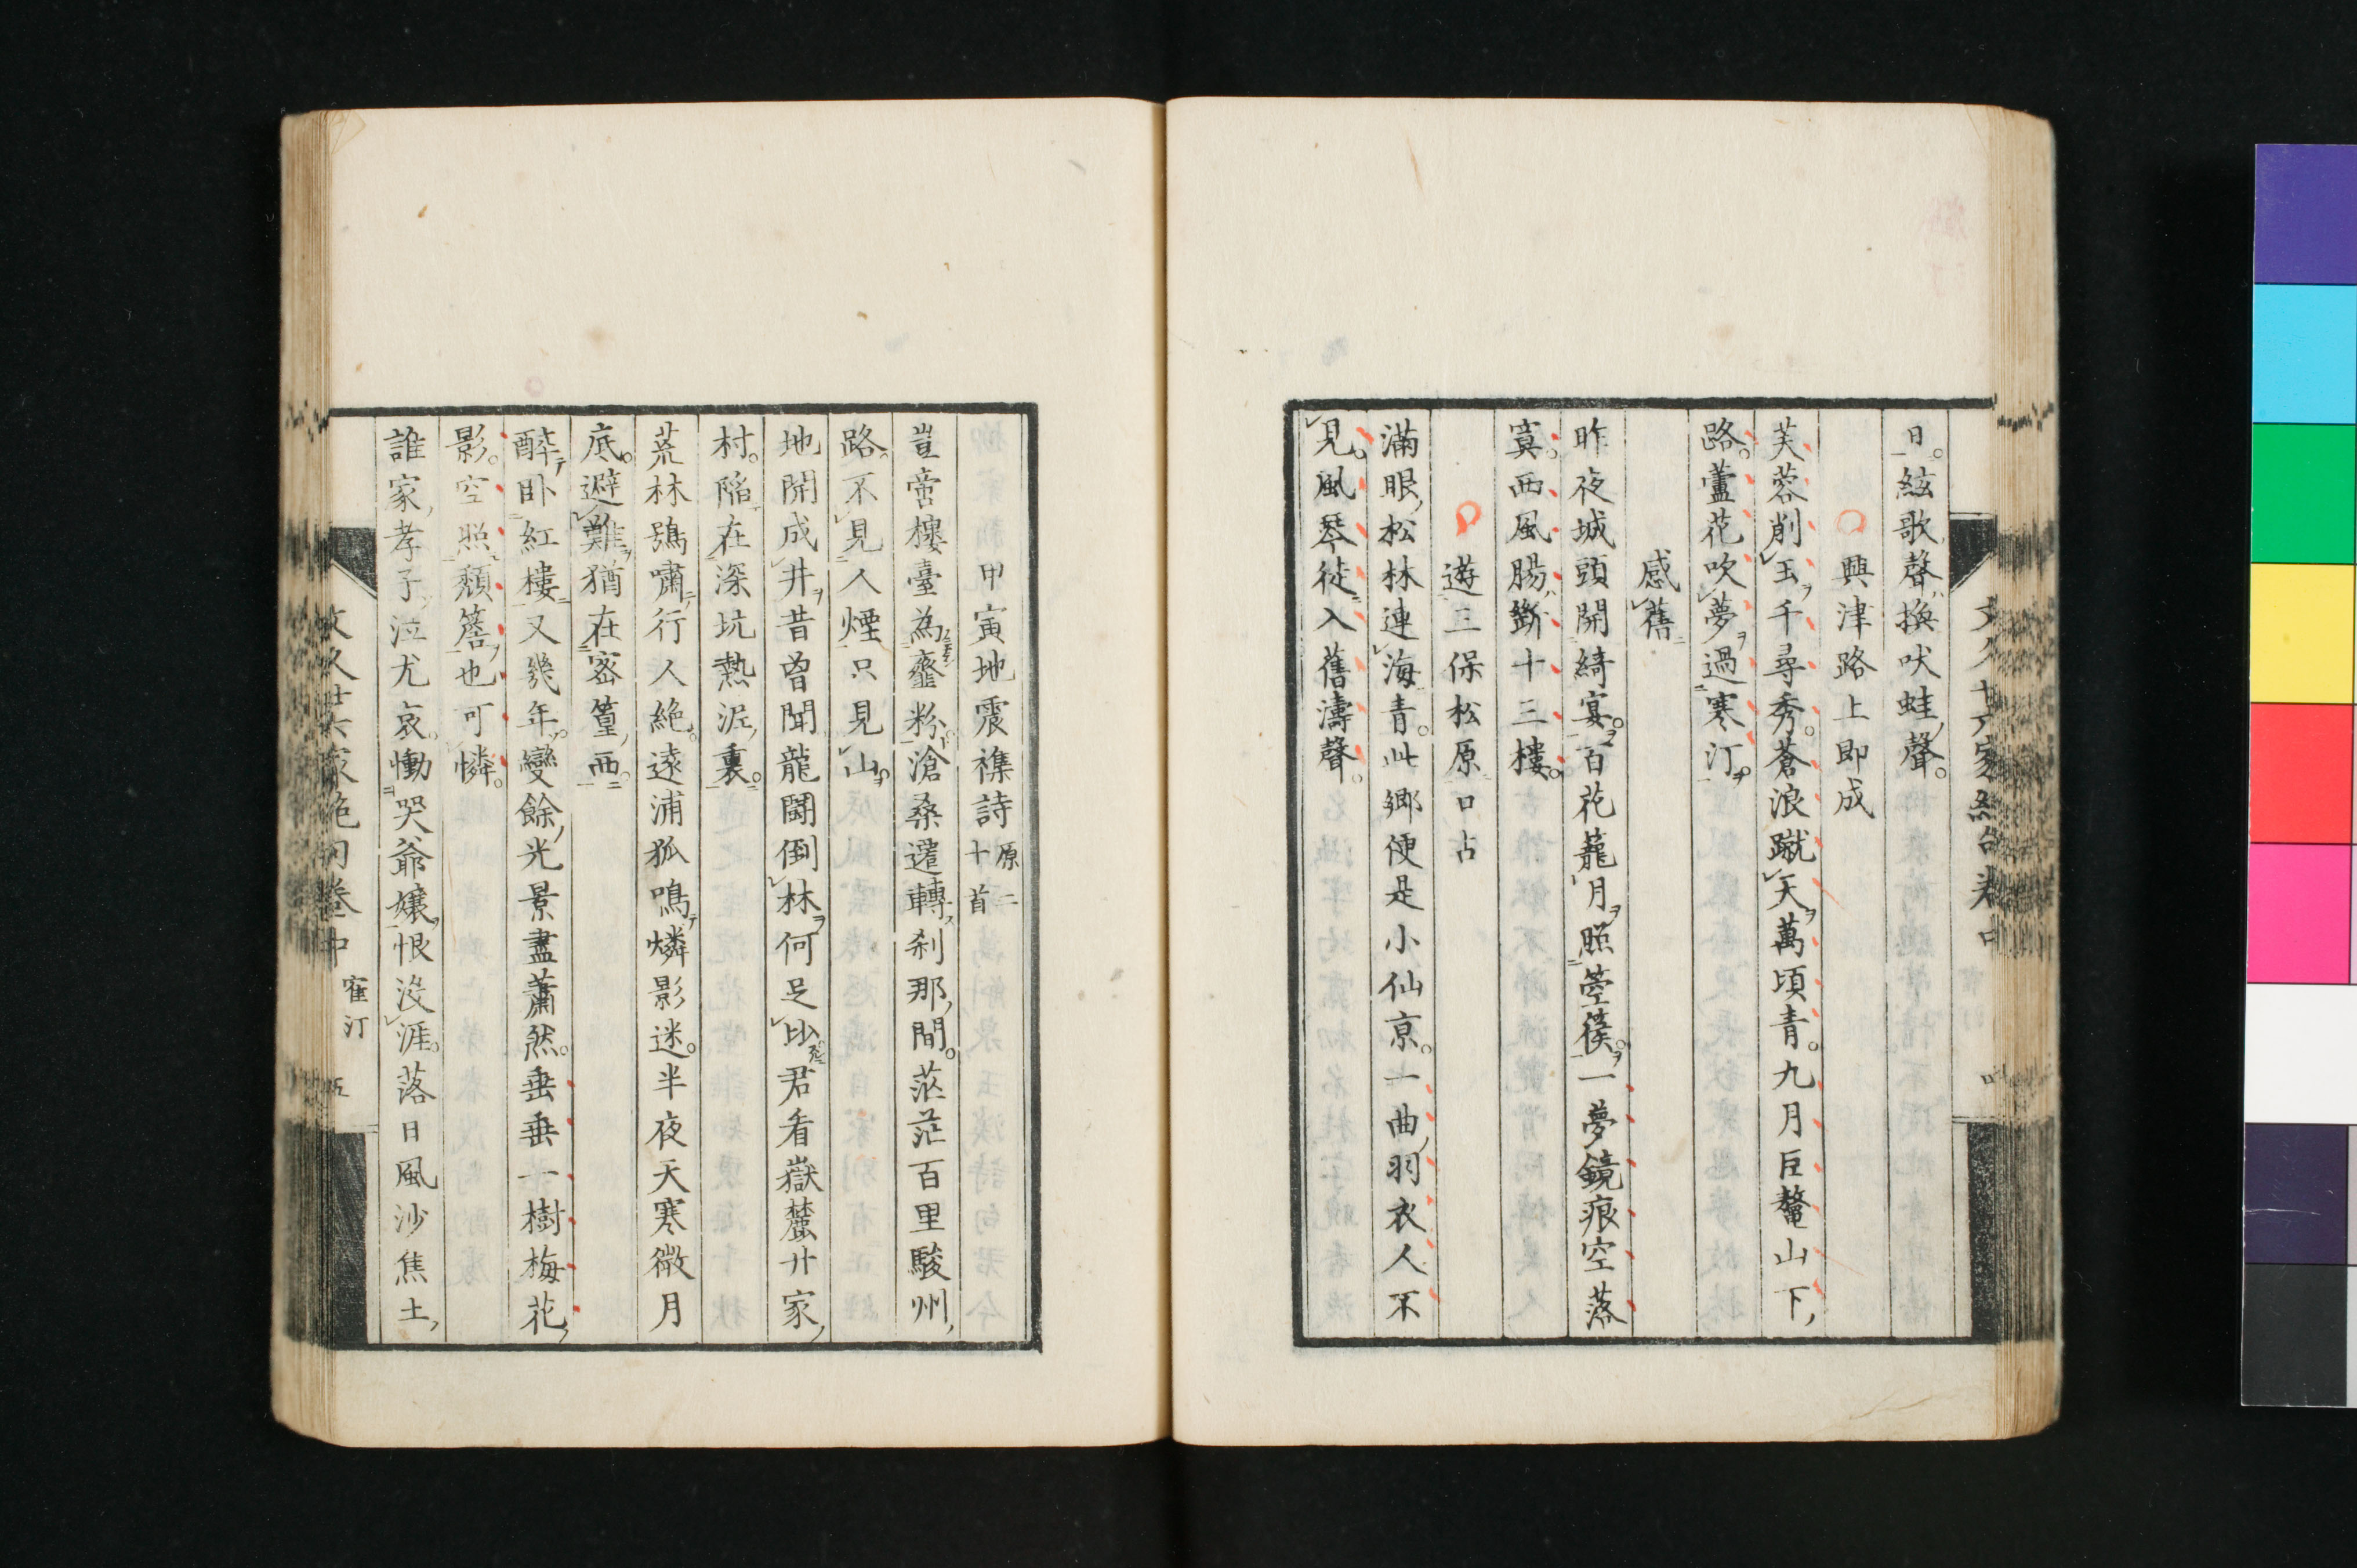 日絃歌聲換吠蛙聲
興津路上即成
芙蓉削玉千尋秀蒼浪蹴天萬頃青九月巨鼇山下
路蘆花吹夢過寒汀
感舊
昨夜城頭開綺宴百花蘢月照箜篌一夢鏡痕空落
寞西風腸斷十三樓
遊三保松原口占
滿眼松林連海青此鄉便是小仙京一曲羽衣人不
見風琴徒入舊濤聲
甲寅地震襍詩原二十首
豈啻樓臺為齏粉滄桑遷轉刹那間茫茫百里駿州
路不見人煙只見山
地開成井昔曾聞龍鬪倒林何足比君看嶽麓廿家
村陷在深坑熱泥裏
荒林鴞嘯行人絶遠浦狐鳴燐影迷半夜天寒微月
底避難猶在密篁西
醉臥紅樓又幾年變餘光景盡蕭然垂垂一樹梅花
影空照頽簷也可憐
誰家孝子泣尤哀慟哭爺嬢恨沒涯落日風沙焦土
文久廿六家絶句卷中 窪汀 五